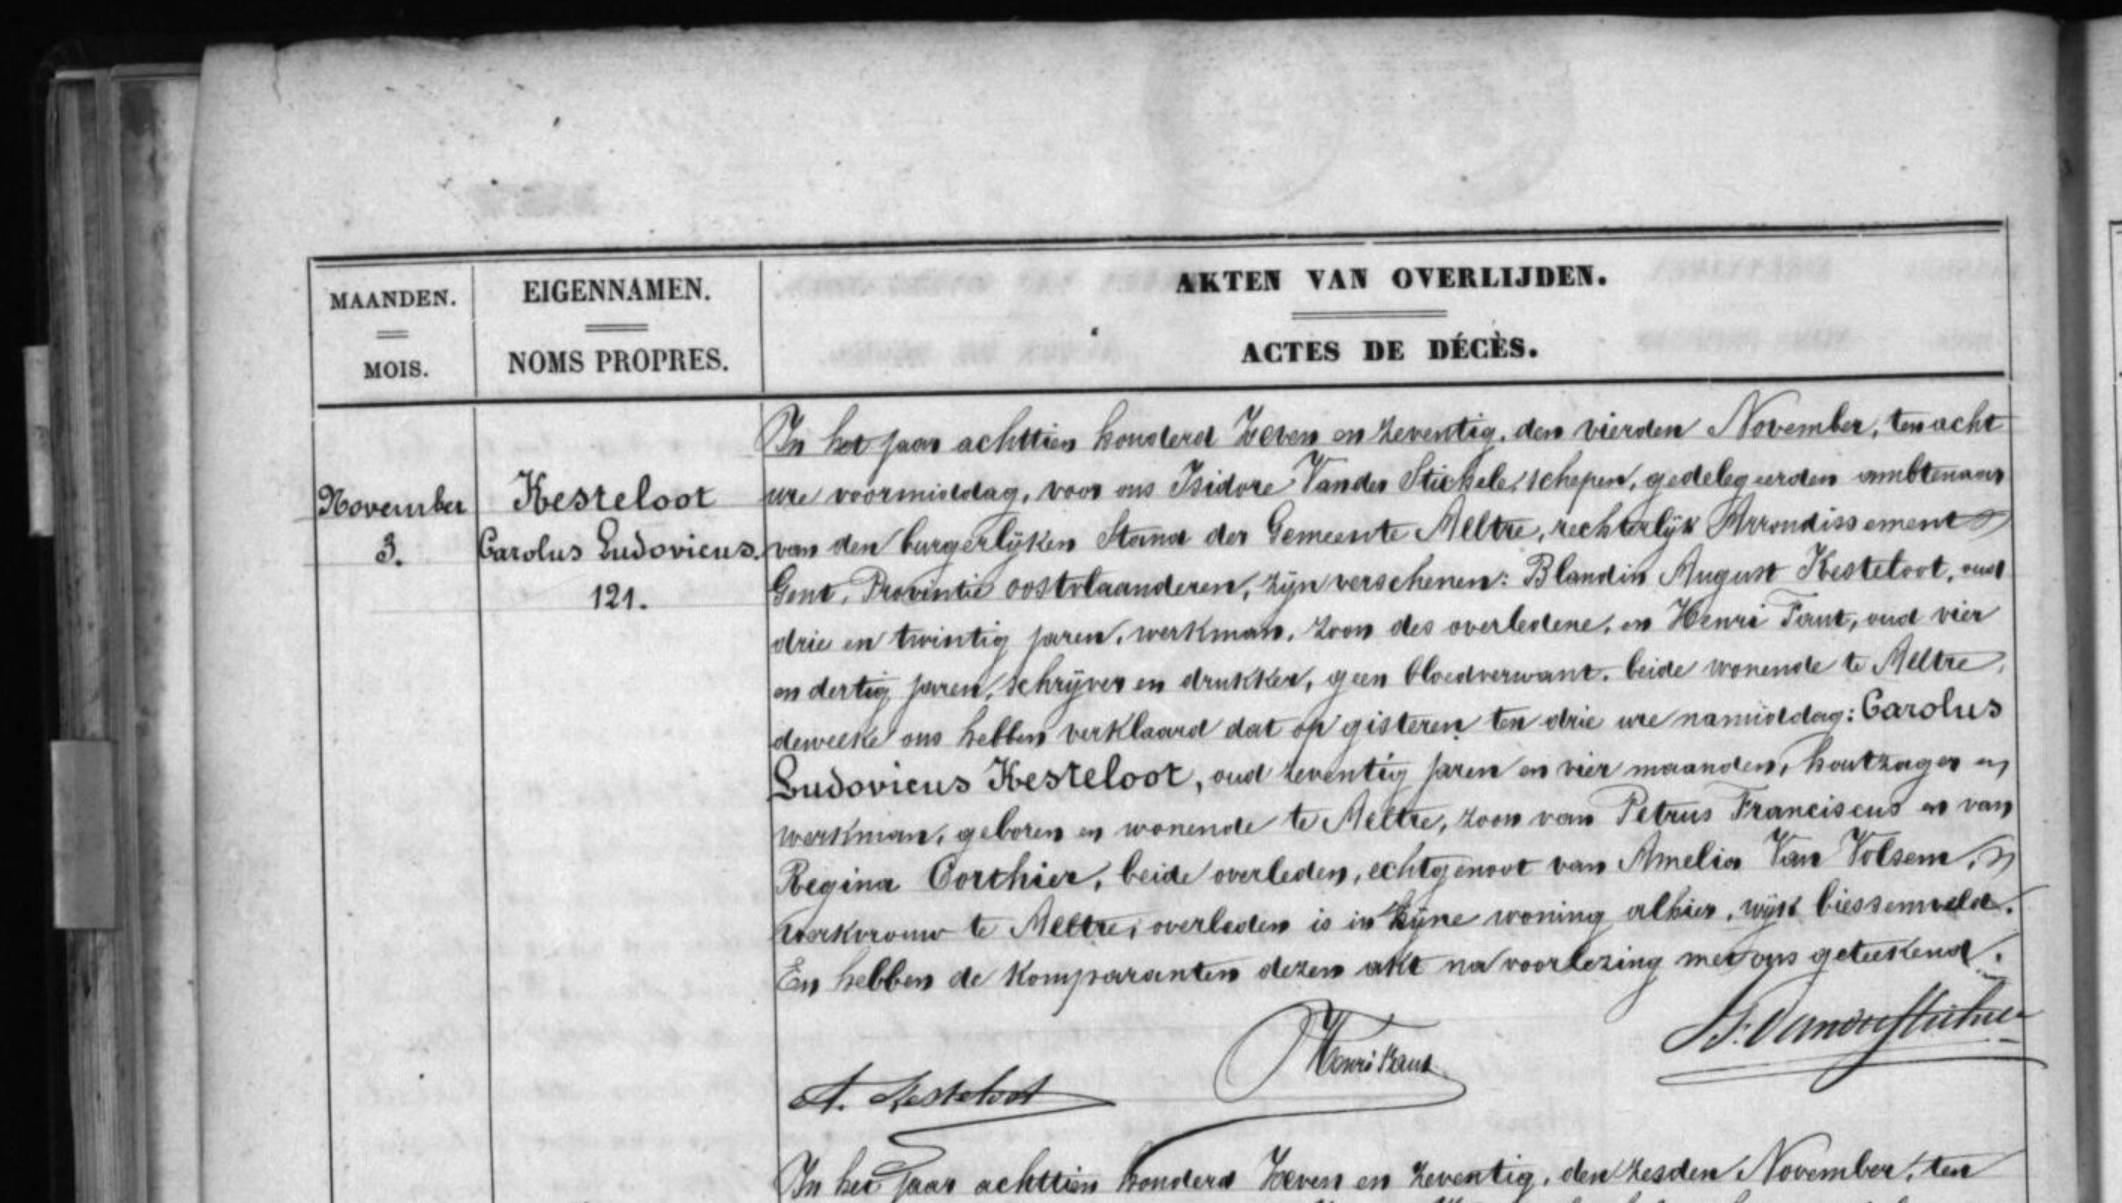 MAANDEN.
MOIS.
EIGENNAMEN.
NOMS PROPRES.
AKTEN VAN OVERLIJDEN.
ACTES DE DÉCÈS.
November
3.
Kesteloot
Carolus Ludovicus.
121.
In het jaar achttien honderd Zeven en Zeventig, den vierden November, ten acht
ure voormiddag, voor ons Isidore Vander Stichele, schepen, gedelegeerden ambtenaar
van den burgerlijken Stand der Gemeente Aeltre, rechterlijk Arrondissement
Gent, Provintie oostvlaanderen, zijn verschenen: Blandin August Kesteloot, oud
drie en twintig jaren, werkman, zoon des overledene, en Henri Taut, oud vier
en dertig jaren, schrijver en drukker, geen bloedverwant, beide wonende te Aeltre,
dewelke ons hebben verklaard dat op gisteren ten drie ure namiddag: Carolus
Ludovicus Kesteloot, oud zeventig jaren en vier maanden, houtzager en
werkman, geboren en wonende te Aeltre, zoon van Petrus Franciscus en van
Regina Corthier, beide overleden, echtgenoot van Amelia Van Volsem,
werkvrouw te Aeltre, overleden is in zijne woning alhier, wijk biessemvelde.
En hebben de komparanten dezen akt na voorlezing met ons geteekend.
A. Kesteloot
Henri Taut
In het jaar achttien honderd Zeven en Zeventig, den zesden November, ten